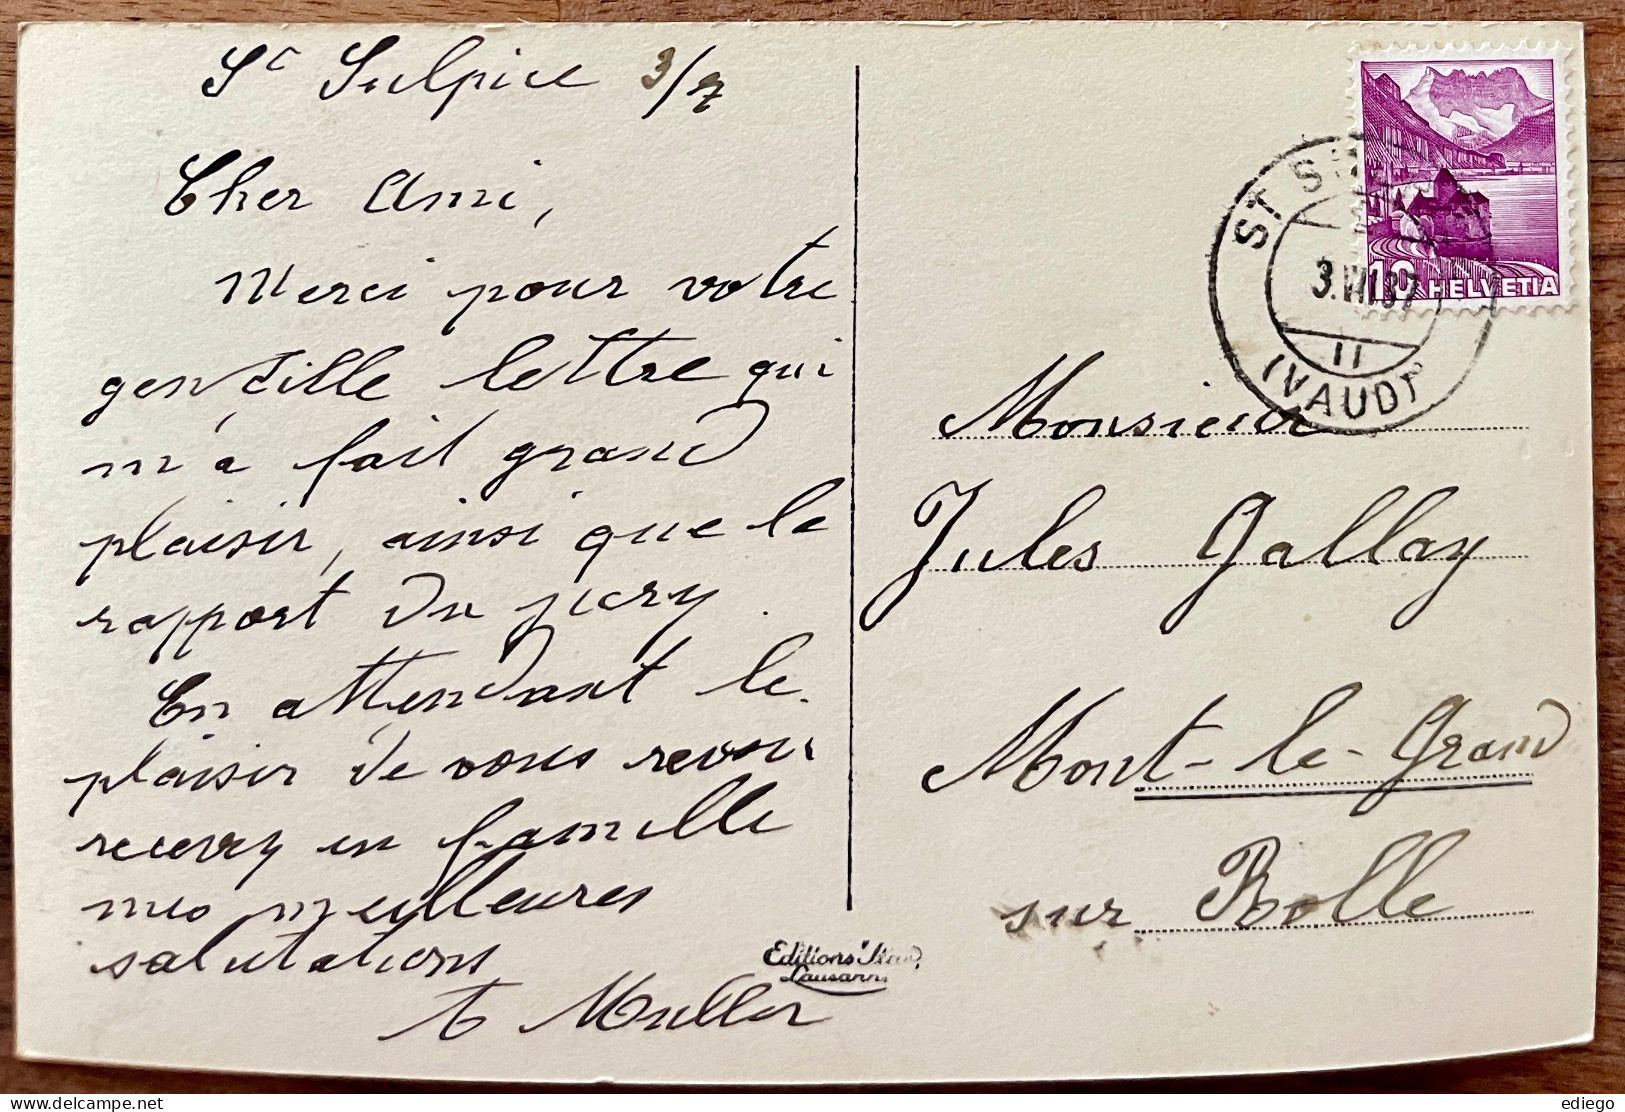 St Sulpice 3/7
Cher Ami,
Merci pour votre
gentille lettre qui
m'a fait grand
plaisir, ainsi que le
rapport du jury.
En attendant le
plaisir de vous revoir
recevez en famille
mes meilleures
salutations
Muller
10 HELVETIA
ST S
3.VII.37
11
(VAUD)
Monsieur
Jules Gallay
Mont-le-Grand
sur Rolle
Editions
Lausanne
ediego